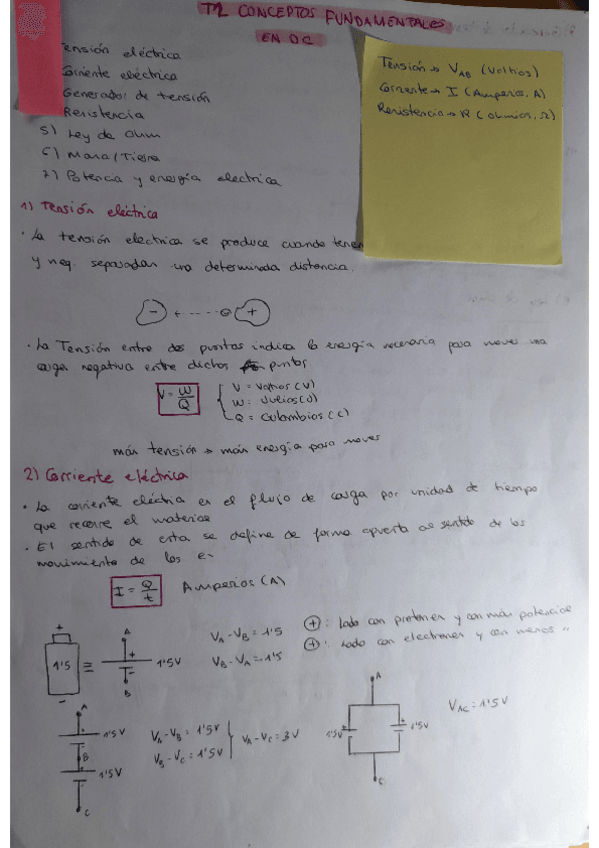 T2 CONCEPTOS FUNDAMENTALES
EN DC
Tensión → VAB (Voltios)
Corriente → I (Amperios, A)
Resistencia → R (ohmios, Ω)
ensión eléctrica
Corriente eléctrica
Generador de tensión
Resistencia
5) Ley de Ohm
6) Masa/Tierra
7) Potencia y energía electrica
1) Tensión eléctrica
· La tensión electrica se produce cuando tenem
y neg. separadas una determinada distancia.
- ← - - - - ⊖ +
· La Tensión entre dos puntos indica la energía necesaria para mover una
carga negativa entre dichos puntos
V = W/Q
V = Voltios (V)
W = Julios (J)
Q = Culombios (C)
más tensión → más energía para mover
2) Corriente eléctrica
· La corriente eléctrica es el flujo de carga por unidad de tiempo
que recorre el material
· El sentido de esta se define de forma opuesta al sentido de los
movimiento de los e-
I = Q/t Amperios (A)
+ 1'5 - ≡ A + 1'5V - B
VA - VB = 1'5
VB - VA = -1'5
⊕: lado con protones y con más potencial
⊕: lado con electrones y con menos "
A 1'5V B 1'5V C
VA - VB = 1'5V
VB - VC = 1'5V
VA - VC = 3V
A 1'5V + 1'5V C
VAC = 1'5V